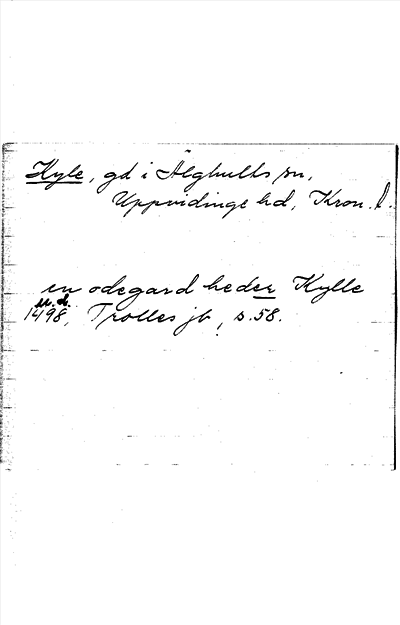 Kyle, gd i Älghults sn,
Uppvidinge hd, Kron. l.
en odegard heder Kylle
u. d.
1498, Trolles jb, s. 58.